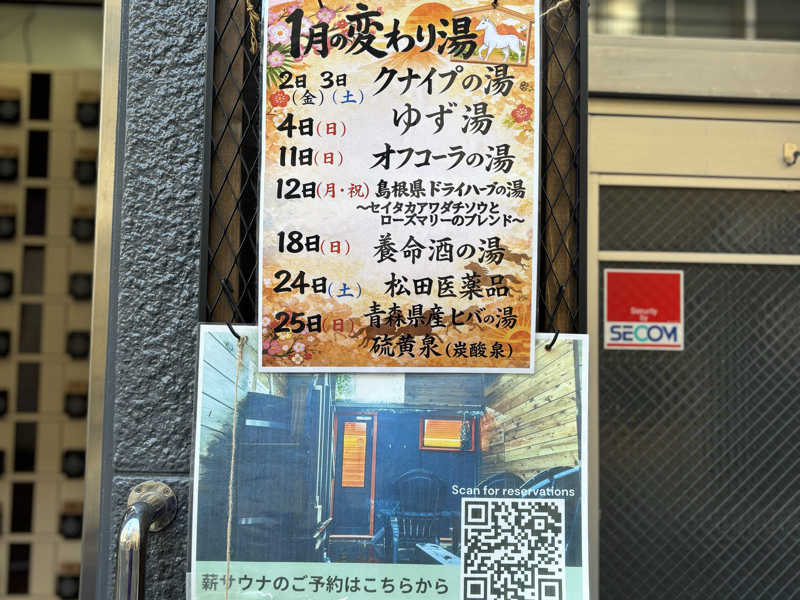 1月の変わり湯
2日 3日 クナイプの湯
(金)(土)
4日(日) ゆず湯
11日(日) オフコーラの湯
12日(月・祝) 島根県ドライハーブの湯
～セイタカアワダチソウと
ローズマリーのブレンド～
18日(日) 養命酒の湯
24日(土) 松田医薬品
25日(日) 青森県産ヒバの湯
硫黄泉(炭酸泉)
Security
by
SECOM
Scan for reservations
薪サウナのご予約はこちらから